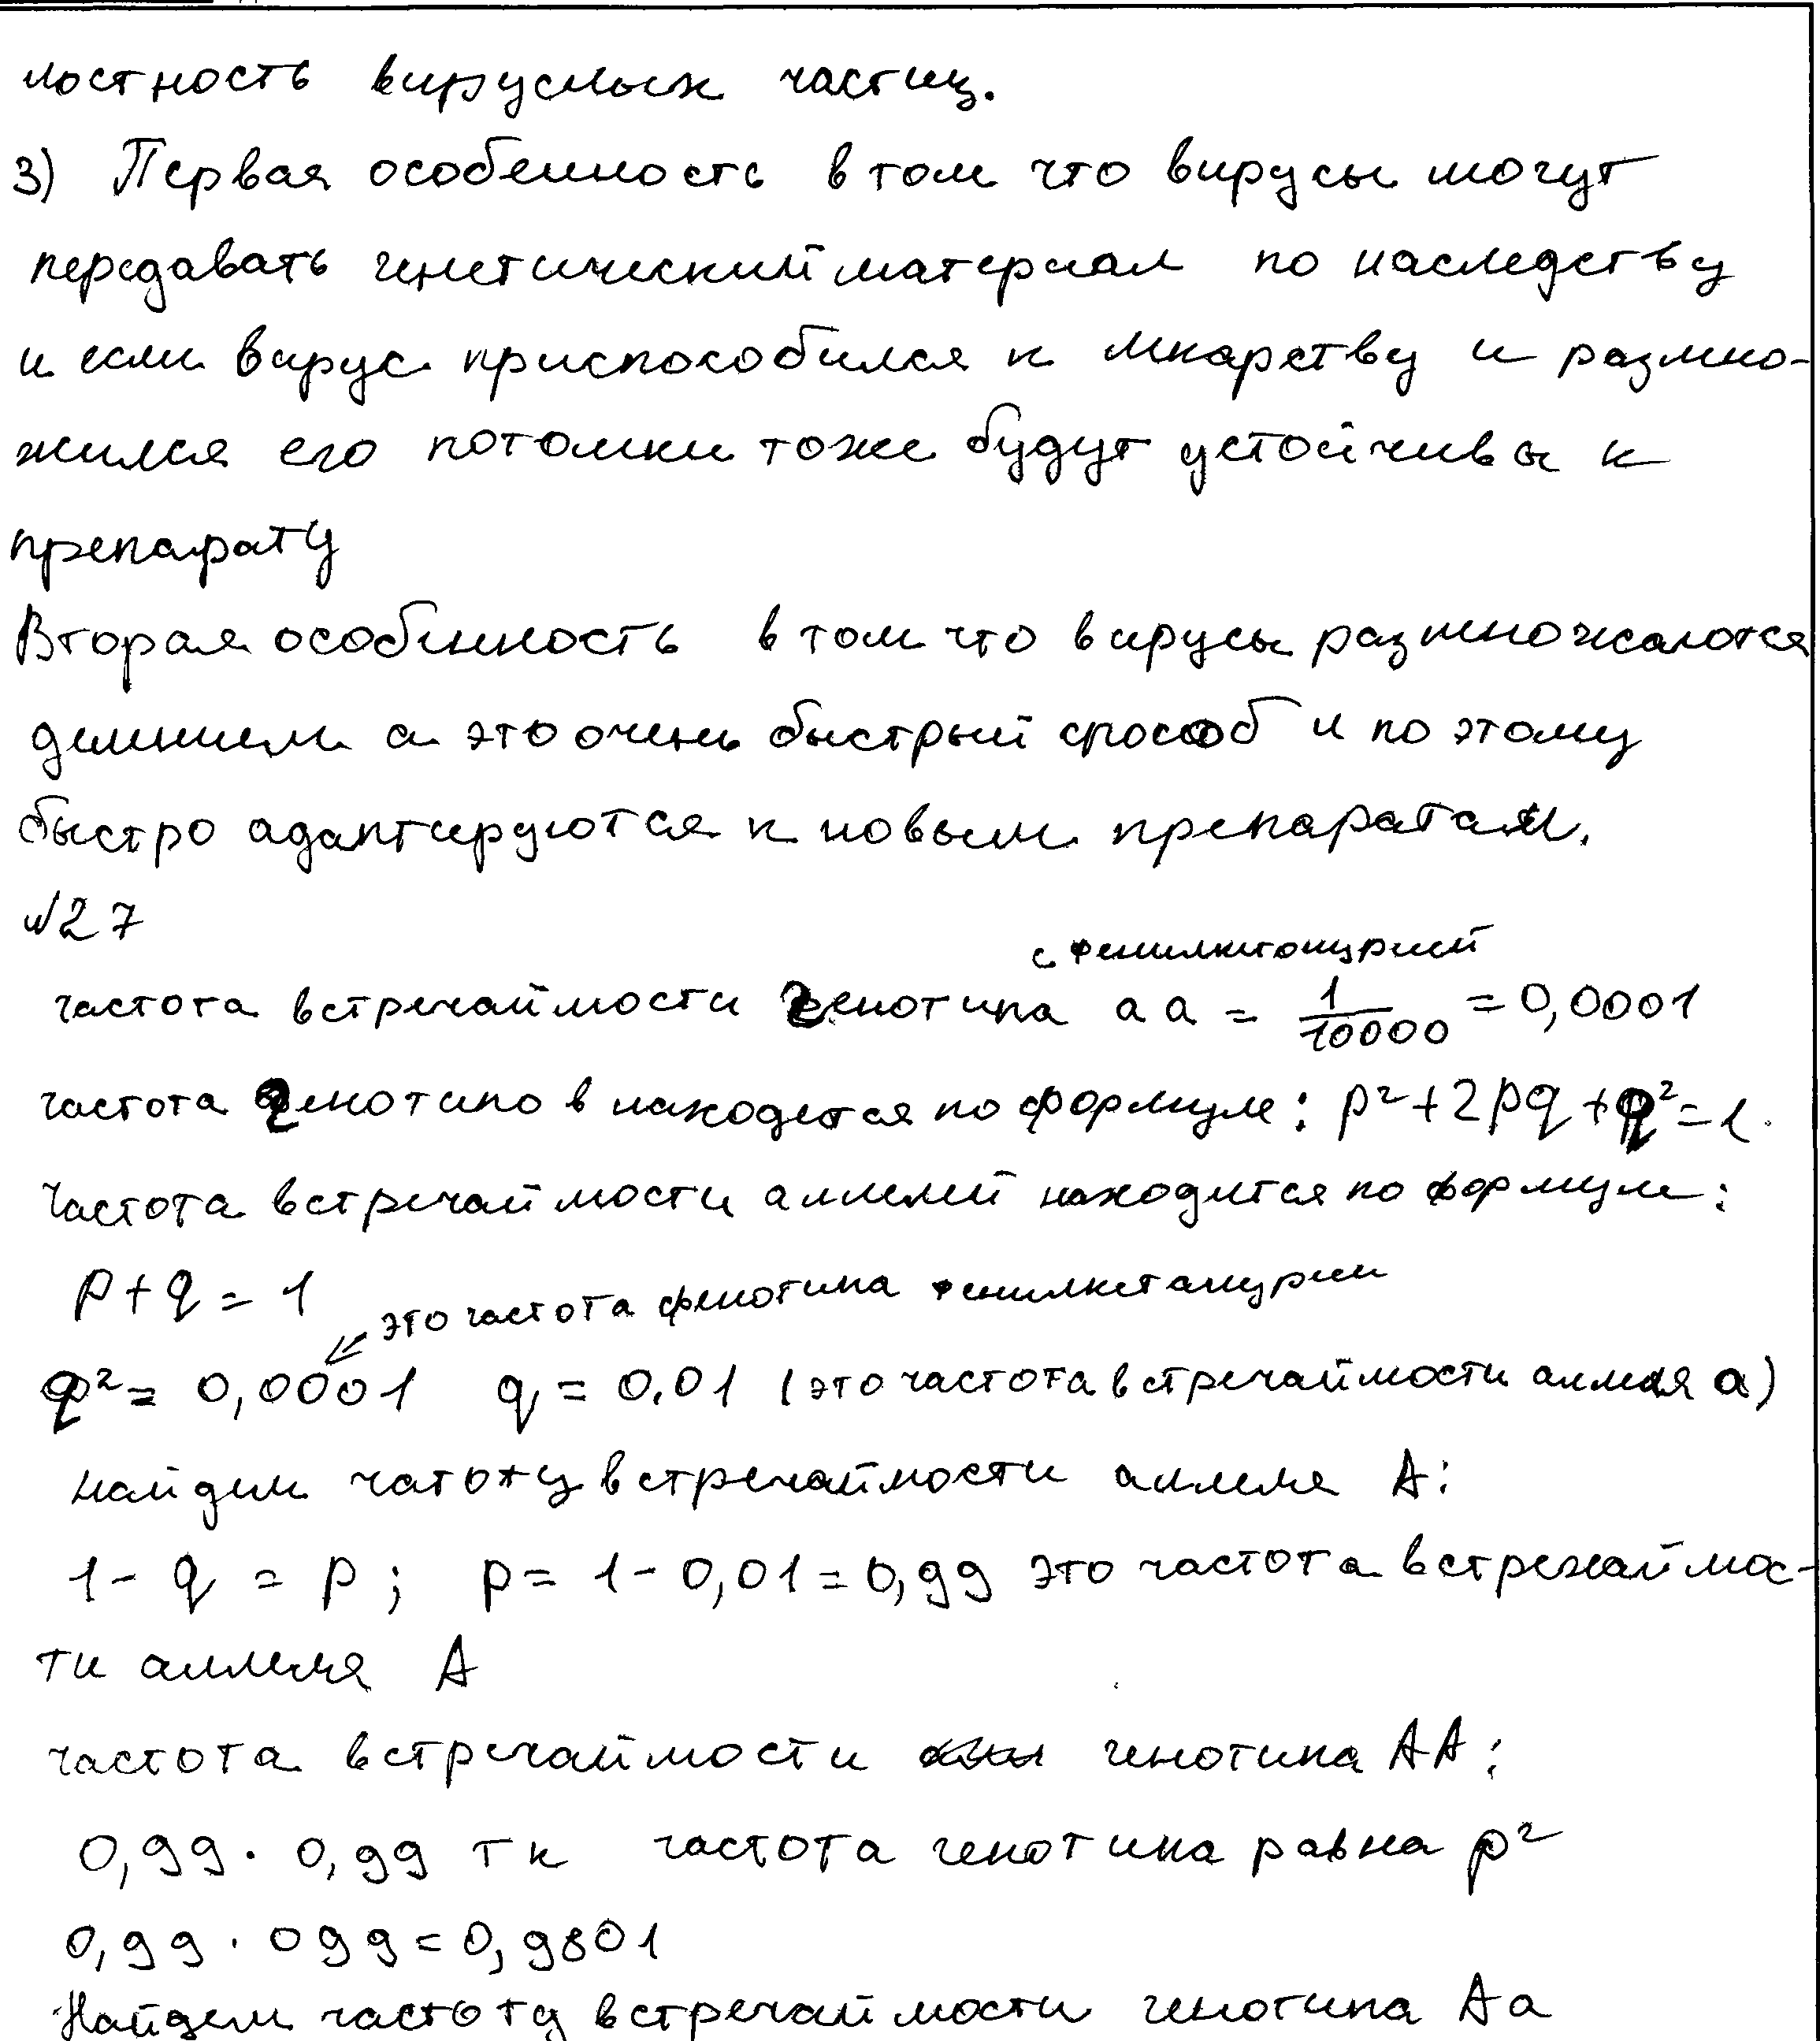 лостность вирусных частиц.
3) Первая особенность в том что вирусы могут
передавать генетический материал по наследству
и если вирус приспособился к лкарству и размно-
жился его потомки тоже будут устойчивы к
препарату
Вторая особенность в том что вирусы размножаются
делением а это очень быстрый способ и по этому
быстро адаптируются к новым препаратам.
№27
с фенилкетонурией
частота встречаймости генотипа aa = 1/10000 = 0,0001
частота генотипов находится по формуле: p²+2pq+q²=1.
Частота встречаймости аллелей находится по формуле:
p+q=1
это частота фенотипа фенилкетанурии
q²= 0,0001 q = 0.01 (это частота встречаймости аллеля a)
найдем чатоту встречаймости аллеля A:
1-q = p; p= 1-0,01=0,99 это частота встречаймос-
ти аллеля A
частота встречаймости генотипа AA:
0,99·0,99 тк частота генотипа равна p²
0,99·099=0,9801
Найдем частоту встречаймости генотипа Aa